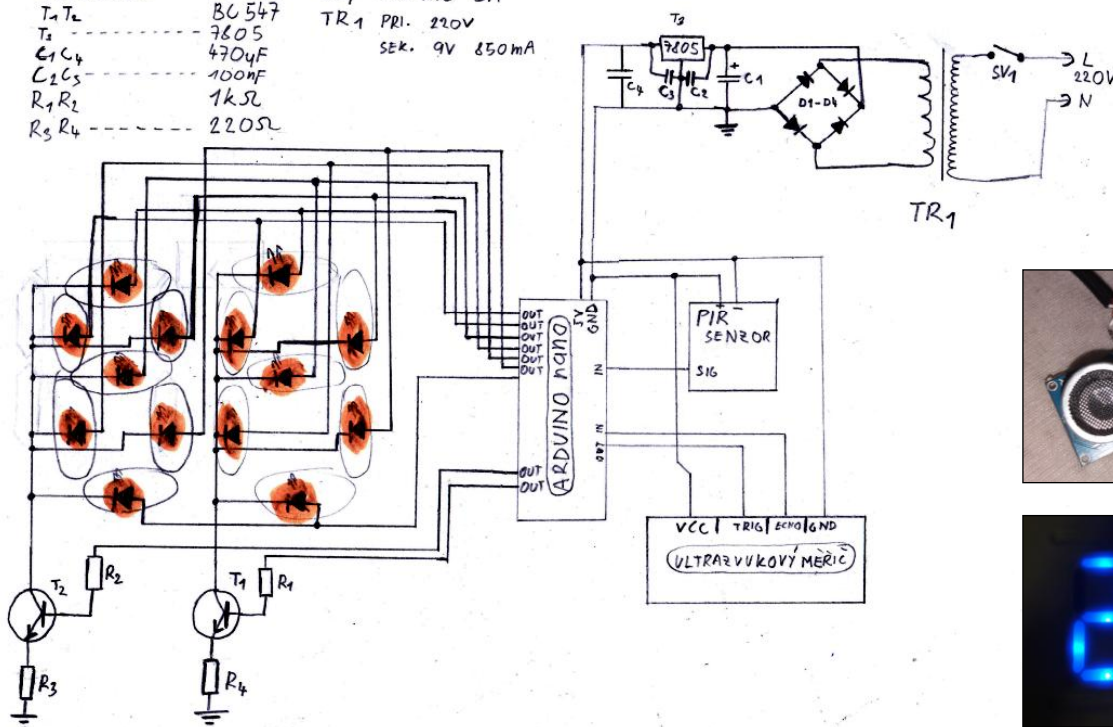 T1 T2 BC 547
T3 - - - - - - - - - - 7805
C1 C4 470µF
C2 C3 - - - - - - - - 100nF
R1 R2 1kΩ
R3 R4 - - - - - - - - 220Ω
TR1 PRI. 220V
SEK. 9V 850mA
T3
7805
C4
C3
C2
+
C1
D1-D4
SV1
L
220V
N
TR1
OUT
OUT
OUT
OUT
OUT
OUT
5V
GND
ARDUINO nano
IN
IN
OUT
OUT
OUT
+ -
PIR
SENZOR
SIG
VCC | TRIG | ECHO | GND
ULTRAZVUKOVÝ MĚŘIČ
T2
R2
T1
R1
R3
R4